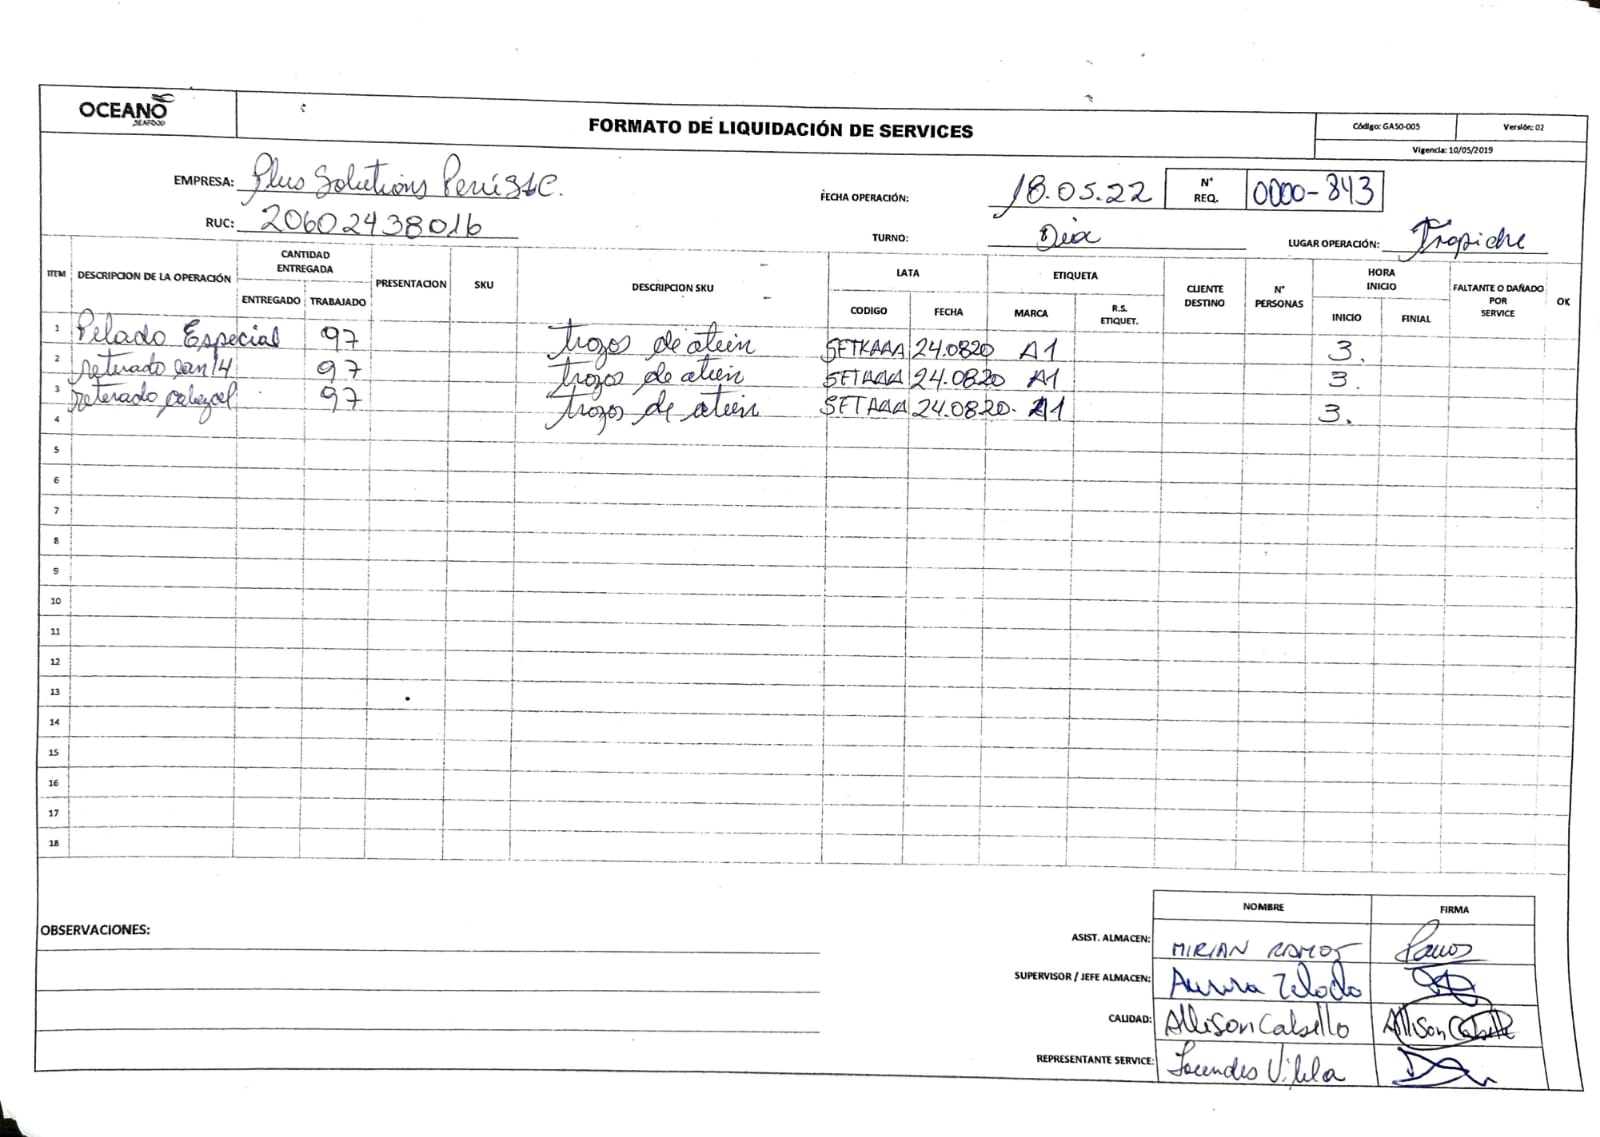 OCEANO
SEAFOOD
FORMATO DE LIQUIDACIÓN DE SERVICES
Código: GA50-005
Versión: 02
Vigencia: 10/05/2019
EMPRESA: Plus Solutions Perú SAC.
FECHA OPERACIÓN: 18.05.22
N° REQ. 0000-843
RUC: 20602438016
TURNO: Dia
LUGAR OPERACIÓN: Trapiche
ITEM DESCRIPCION DE LA OPERACIÓN CANTIDAD ENTREGADA PRESENTACION SKU DESCRIPCION SKU LATA ETIQUETA CLIENTE DESTINO N° PERSONAS HORA INICIO FALTANTE O DAÑADO POR SERVICE OK
ENTREGADO TRABAJADO CODIGO FECHA MARCA R.S. ETIQUET. INICIO FINIAL
1 Pelado Especial 97 trozos de atún SETKAAA 24.0820 A1 3.
2 reterado can/4 97 trozos de atún SETAAA 24.0820 A1 3.
3 reterado cabezal 97 trozos de atún SETAAA 24.0820. A1 3.
4
5
6
7
8
9
10
11
12
13
14
15
16
17
18
OBSERVACIONES:
NOMBRE FIRMA
ASIST. ALMACEN: MIRIAN RAMOS Ramos
SUPERVISOR / JEFE ALMACEN: Aurora
CALIDAD: Allison Calsillo Allison
REPRESENTANTE SERVICE: Vilela